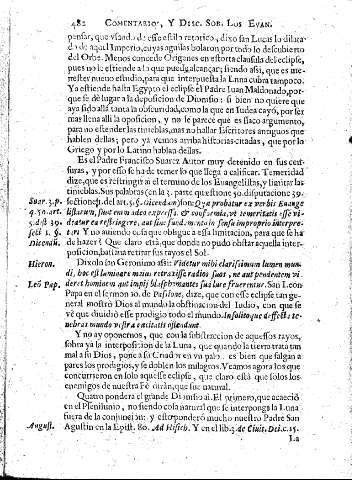 482 COMENTARIO, Y DISC. SOB. LOS EVAN.
pensar, que usando de esse estilo retorico, dixo san Lucas lo dilata-
do de aquel Imperio, cuyas aguilas bolaron por todo lo descubierto
del Orbe. Menos concede Origenes en esforta clausula del eclipse,
pues no le estiende a la que puedq alcançar; siendo assi, que es me-
nester nuevo estudio, para que interpuesta la Luna cubra tampoco.
Ya estiende hasta Egypto el eclipse el Padre Iuan Maldonado, por-
que se dè lugar a la deposicion de Dionisio: si bien no quiere que
aya sido allà tanta la obscuridad, como la que en Iudea cayò, por ser
mas llena alli la oposicion, y no se parece que es flaco argumento,
para no estender las tinieblas, mas no hallar Escritores antiguos que
hablen dellas; pero ya vemos arriba historias citadas, que por lo
Griego y por lo Latino hablan dellas.
Es el Padre Francisco Suarez Autor muy detenido en sus cen-
suras, y por esso se ha de temer lo que llega a calificar. Temeridad
dize, que es restringir al termino de los Evangelistas, y limitar las
tinieblas. Sus palabras (en la 3. parte question 30. disputacione 39.
Suar. 3. p. section 1. del art. 5. §. Dicendum) son: Quæ probatur ex verbis Evange
q. 30. art. listarum, sunt enim adeo expressa, & conformia, vt temeritatis esse vi-
5. dist 39. deatur ea restringere, aut sine fundamento in sensu improprio interpre-
sect 1. §. tari Y no aviendo cosa que obligue a essa limitacion, para que se ha
Dicendũ. de hazer? Que claro està, que donde no pudo obstar aquella inter-
posicion, bastaria retirar sus rayos el Sol.
Hieron. Dixolo san Geronimo assi: Videtur mihi clarissimum lumen mun-
di, hoc est luminare maius retraxisse radios suos, ne aut pendentem vi-
Leõ Pap. deret hominem aut impij blasphemantes sua luce fruerentur. San Leon
Papa en el sermon 10. de Passione, dize, que con esse eclipse tan ge-
neral mostrò Dios al mundo la obstinacion del Iudio, con que se
vè que diuidiò esse prodigio todo el mundo. Insolito que deffectu te-
nebras mundo vestra cæcitatis ostendunt.
Y no ay oponernos, que con la substraccion de aquessos rayos,
sobra ya la interposicion de la Luna, que quando la tierra trata tan
mal a su Dios, pone a su Criador en un palo. es bien que salgan a
pares los prodigios, y se doblen los milagros. Veamos agora los que
concurrieron en solo aquesse eclipse, que claro està que solos los
enemigos de nuestra Fè diràn, que fue natural.
Quatro pondera el grande Dionisio. El primero, que acaeciò
en el Plenilunio, no siendo cosa natural que se interponga la Luna
fuera de la conjuncion: y esto ponderò mucho nuestro Padre San
August. Agustin en la Epist. 80. Ad Hesich. Y en el lib. 3. de Ciuit. Dei. c. 15.
La